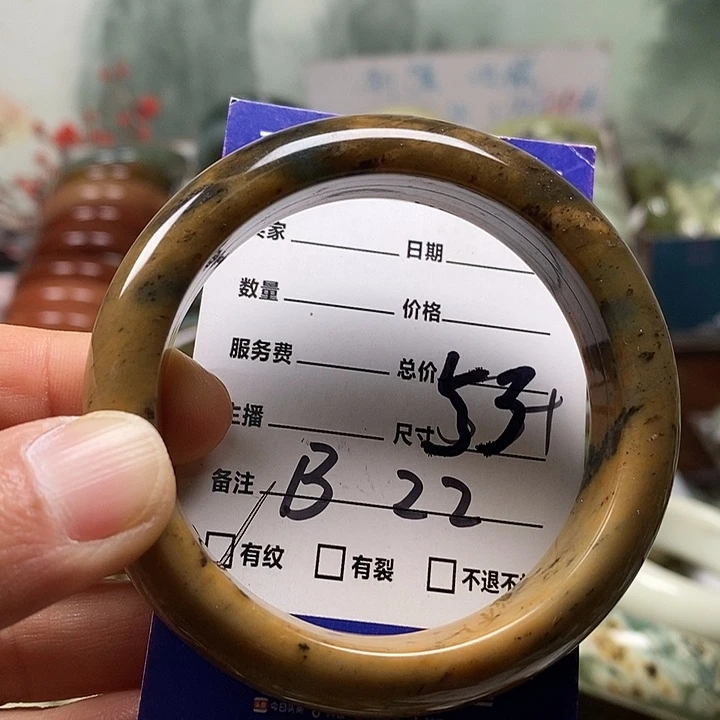 家 日期
数量 价格
服务费 总价
主播 尺寸 53+
备注 B 22
有纹 有裂 不退不
今日头条